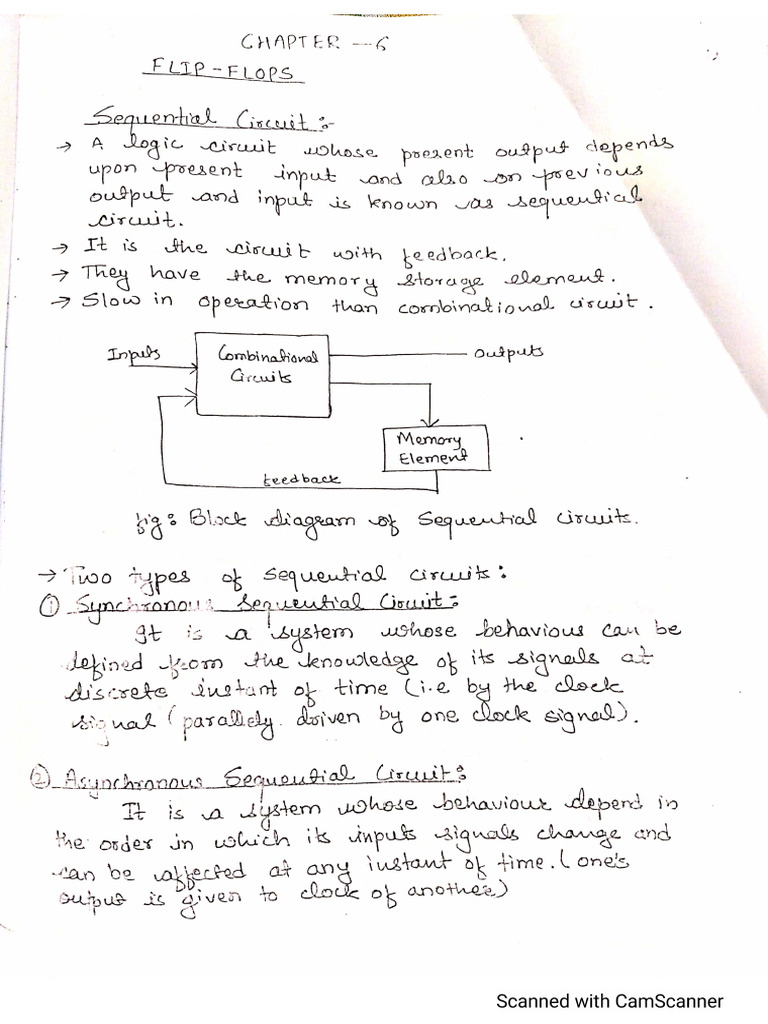 CHAPTER - 6
FLIP-FLOPS
Sequential Circuit:-
→ A logic circuit whose present output depends
upon present input and also on previous
output and input is known as sequential
circuit.
→ It is the circuit with feedback.
→ They have the memory storage element.
→ Slow in operation than combinational circuit.
Inputs
Combinational
Circuits
Outputs
Memory
Element
feedback
fig: Block diagram of Sequential circuits.
→ Two types of sequential circuits:
① Synchronous Sequential Circuit:
It is a system whose behaviour can be
defined from the knowledge of its signals at
discrete instant of time (i.e by the clock
signal (parallely driven by one clock signal).
② Asynchronous Sequential Circuit:
It is a system whose behaviour depend in
the order in which its inputs signals change and
can be affected at any instant of time. (one's
output is given to clock of another)
Scanned with CamScanner